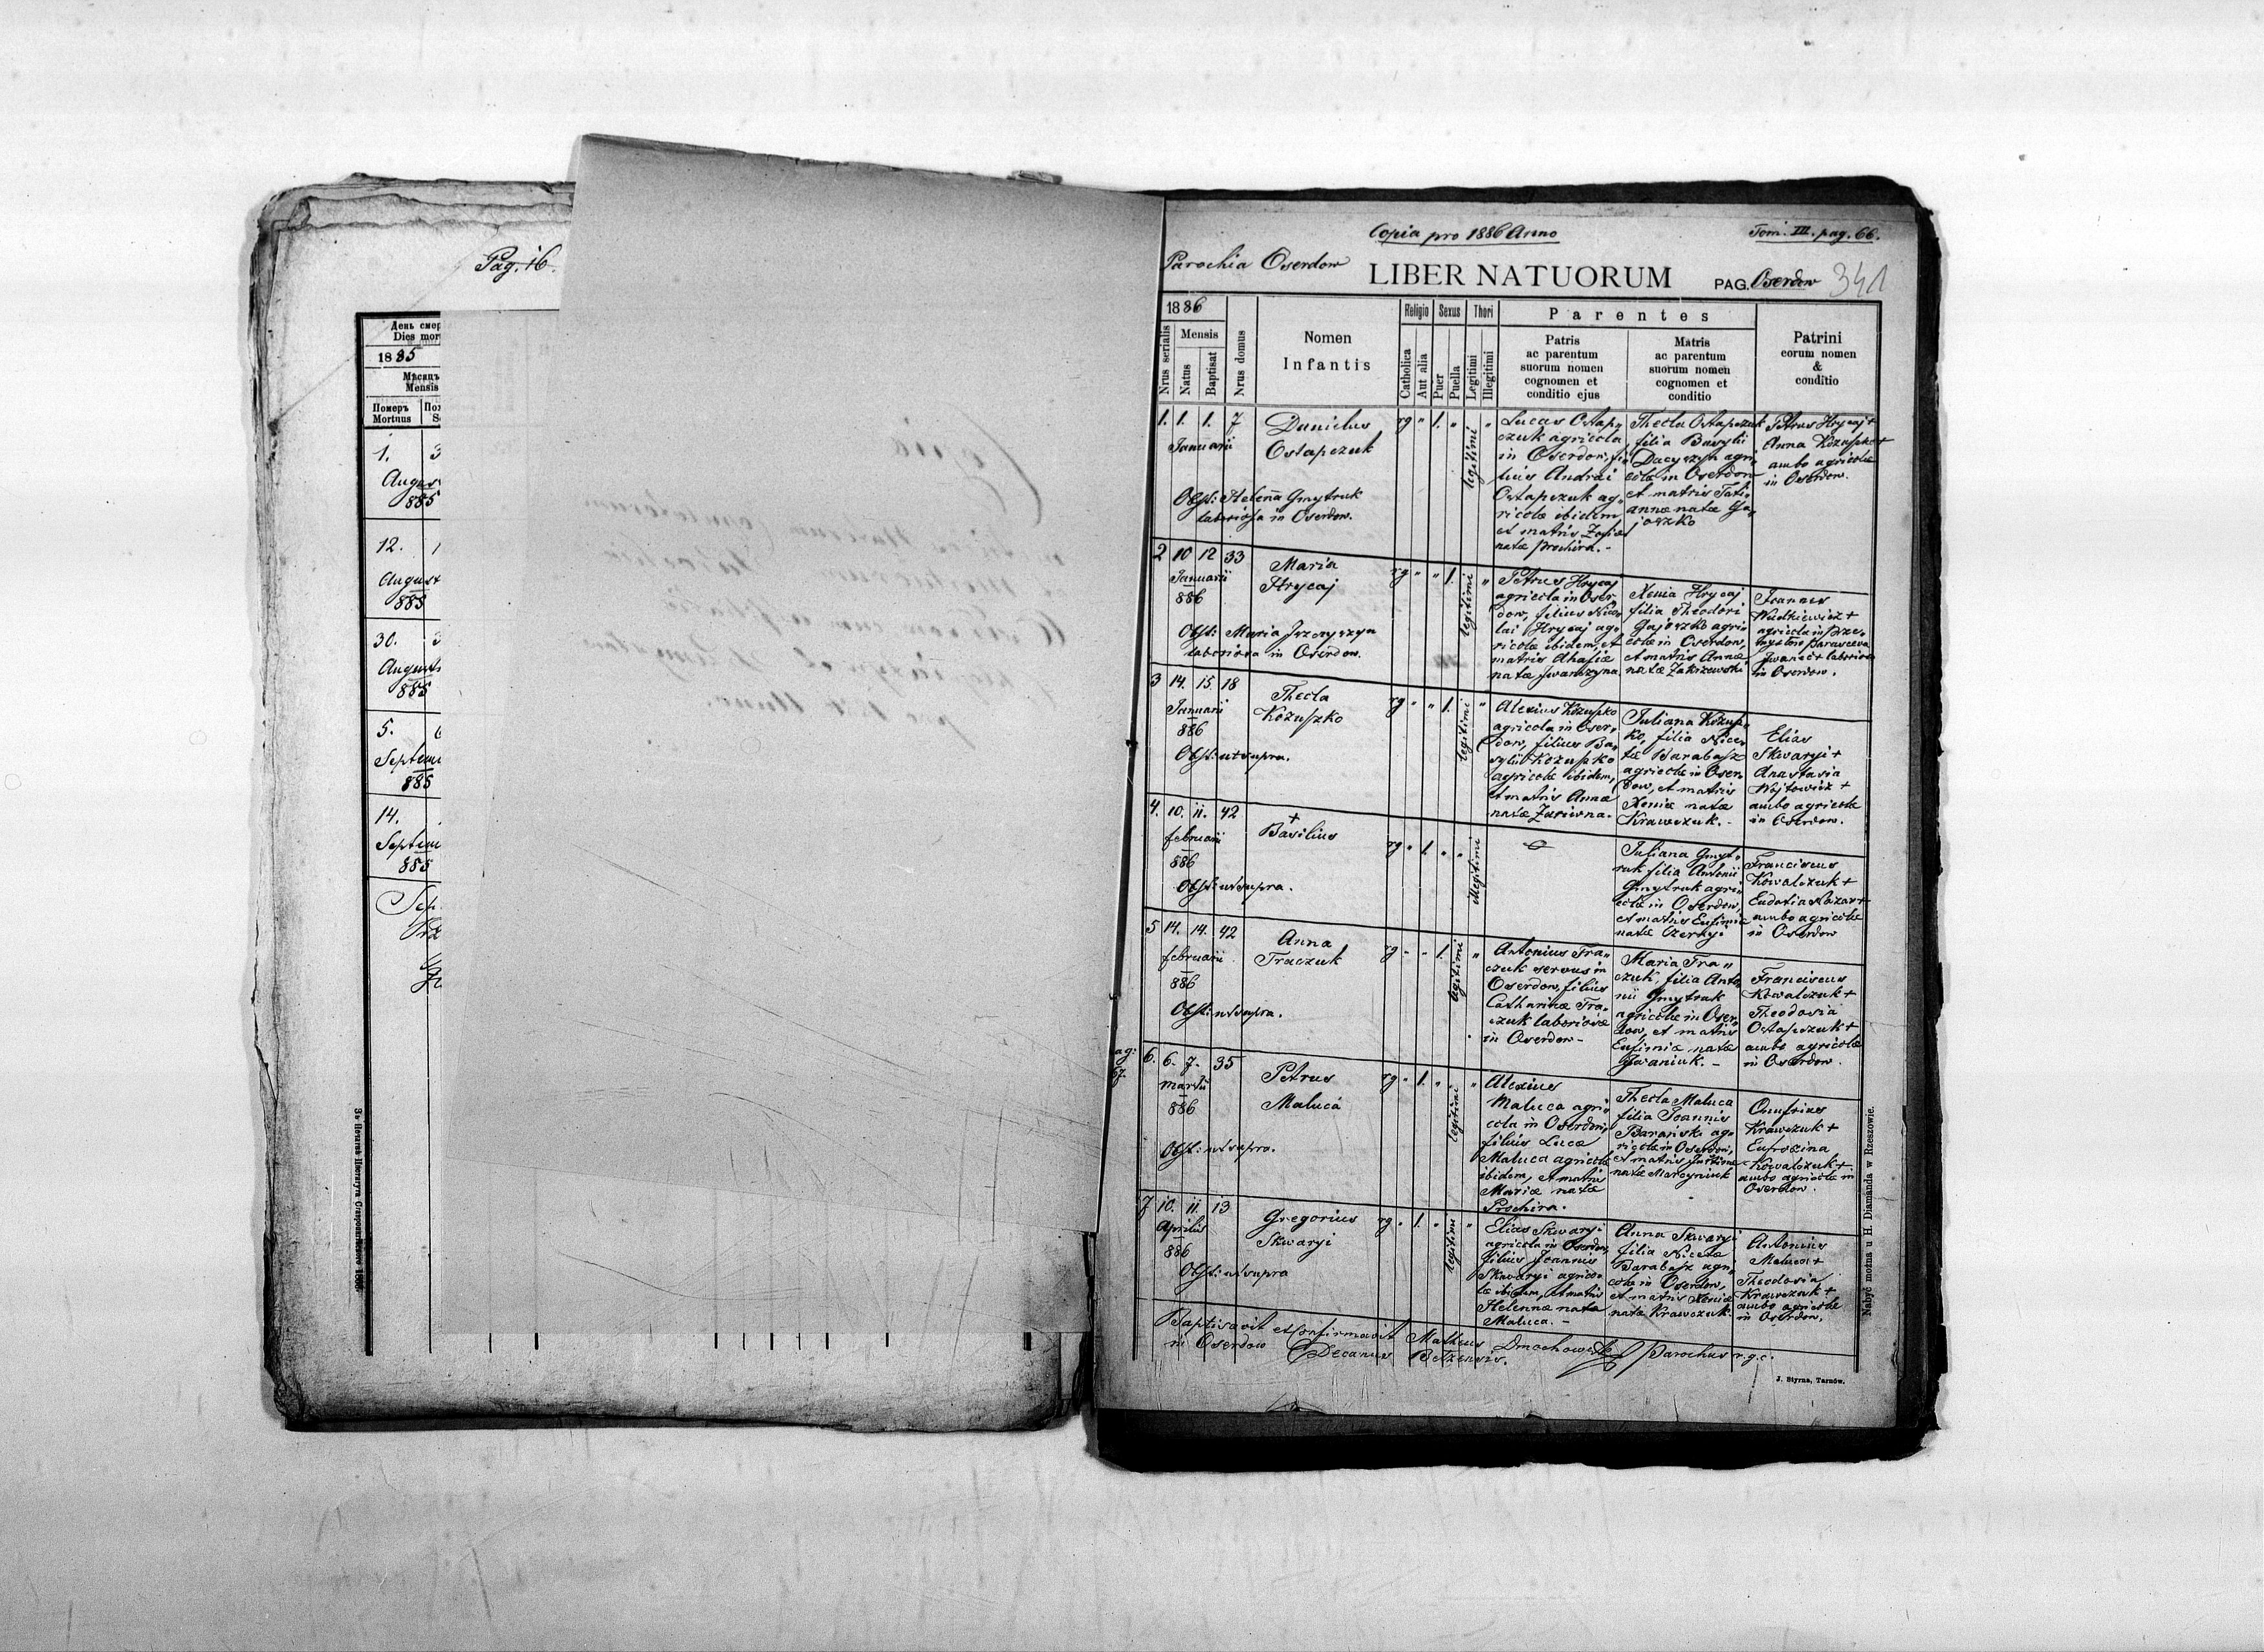 Pag. 16.
День смер
Dies mor
1885
Мѣсяцъ
Mensis
Померъ
Mortuus
1.
August
885
12.
August
885
30.
August
885
5.
Septem
885
14.
Septem
885
Copia
Copia pro 1886 Anno
Tom. III. pag. 66.
Parochia Oserdow
LIBER NATUORUM
PAG. Oserdow 341
1886
Nrus serialis
Mensis
Natus
Baptisat
Nrus domus
Nomen
Infantis
Religio
Catholica
Aut alia
Sexus
Puer
Puella
Thori
Legitimi
Illegitimi
Parentes
Patris
ac parentum
suorum nomen
cognomen et
conditio ejus
Matris
ac parentum
suorum nomen
cognomen et
conditio
Patrini
eorum nomen
&
conditio
1. 1. 1. 7
Januarii
Danielus
Ostapczuk
Obst: Helena Gmytruk
laboriosa in Oserdow.
rg " 1. " legitimi "
Lucas Ostap„
czuk agricola
in Oserdow, fi„
lius Andrei
Ostapczuk ag„
ricolæ ibidem
et matris Zofiæ
natæ Prochira. -
Thecla Ostapczuk
filia Basylii
Dacyszyn agri„
colæ in Oserdow
et matris Tati„
annæ natæ Ga„
joszko
Petrus Hrycaj +
Anna Kozuszko +
ambo agricolæ
in Oserdow.
2 10 12 33
Januarii
886
Maria
Hrycaj
Obst: Maria
laboriosa in Oserdow.
rg " " 1. legitimi "
Petrus Hrycaj
agricola in Oser„
dow, filius Nico„
lai Hrycaj ag„
ricolæ ibidem, et
matris Ahafiæ
natæ Iwanczyna
Xenia Hrycaj
filia Theodori
Gajoszko agri„
colæ in Oserdow,
et matris Annæ
natæ Zakrzewski
Joannes
agricola in Prze„
Parasceva
Iwaniec + laboriosa
in Oserdow.
3 14. 15. 18
Januarii
886
Thecla
Kozuszko
Obst: ut supra.
rg " " 1. legitimi "
Alexius Kozuszko
agricola in Oser„
dow, filius Ba„
sylii Kozuszko
agricolæ ibidem,
et matris Annæ
natæ Zariwna.
Juliana Kozusz„
ko, filia Nice„
tæ Barabasz
agricolæ in Oser„
dow, et matris
Xeniæ natæ
Krawczuk. -
Elias
Skwaryi +
Anastasia
Wojtowicz +
ambo agricolæ
in Oserdow.
4. 10. 11. 42
februarii
886
+
Basilius
Obst: ut supra.
rg " 1. " " illegitimi
Juliana Gmyt„
ruk filia Antonii
Gmytruk agri„
colæ in Oserdow,
et matris Eufimiæ
natæ Czerkyi
Franciscus
Kowalczuk +
Eudoxia Nazar +
ambo agricolæ
in Oserdow
5 14. 14. 42
februarii
886
Anna
Traczuk
Obst: ut supra.
rg " " 1. legitimi "
Antonius Tra„
czuk servus in
Oserdow, filius
Catharinæ Tra„
czuk laboriosæ
in Oserdow -
Maria Tra„
czuk, filia Anto„
nii Gmytruk
agricolæ in Oser„
dow, et matris
Eufimiæ natæ
Iwaniuk. -
Franciscus
Kowalczuk +
Theodosia
Ostapczuk +
ambo agricolæ
in Oserdow.
ag:
67.
6. 6. 7. 35
Martii
886
Petrus
Maluca
Obst: ut supra.
rg " 1. " legitimi "
Alexius
Maluca agri„
cola in Oserdow,
filius Lucæ
Maluca agricolæ
ibidem, et matris
Mariæ natæ
Prochira.
Thecla Maluca
filia Joannis
Baranski ag„
ricolæ in Oserdow,
et matris Justinæ
natæ Marcyniuk
Onufrius
Krawczuk +
Eufrozina
Kowalczuk +
ambo agricolæ in
Oserdow.
7 10. 11. 13
Aprilis
886
Gregorius
Skwaryi
Obst: ut supra
rg " 1. " legitimi "
Elias Skwaryi
agricola in Oserdow,
filius Joannis
Skwaryi agrico„
læ ibidem, et matris
Helennæ natæ
Maluca. -
Anna Skwaryi
filia Nicetæ
Barabasz agri„
colæ in Oserdow,
et matris Xeniæ
natæ Krawczuk.
Antonius
Maluca +
Theodosia
Krawczuk +
ambo agricolæ
in Oserdow.
Baptisavit et confirmavit Matheus Dmochowski Parochus r.g.c.
in Oserdow Decanus Belzensis.
J. Styrna, Tarnów.
Nabyć można u H. Diamanda w Rzeszowie.